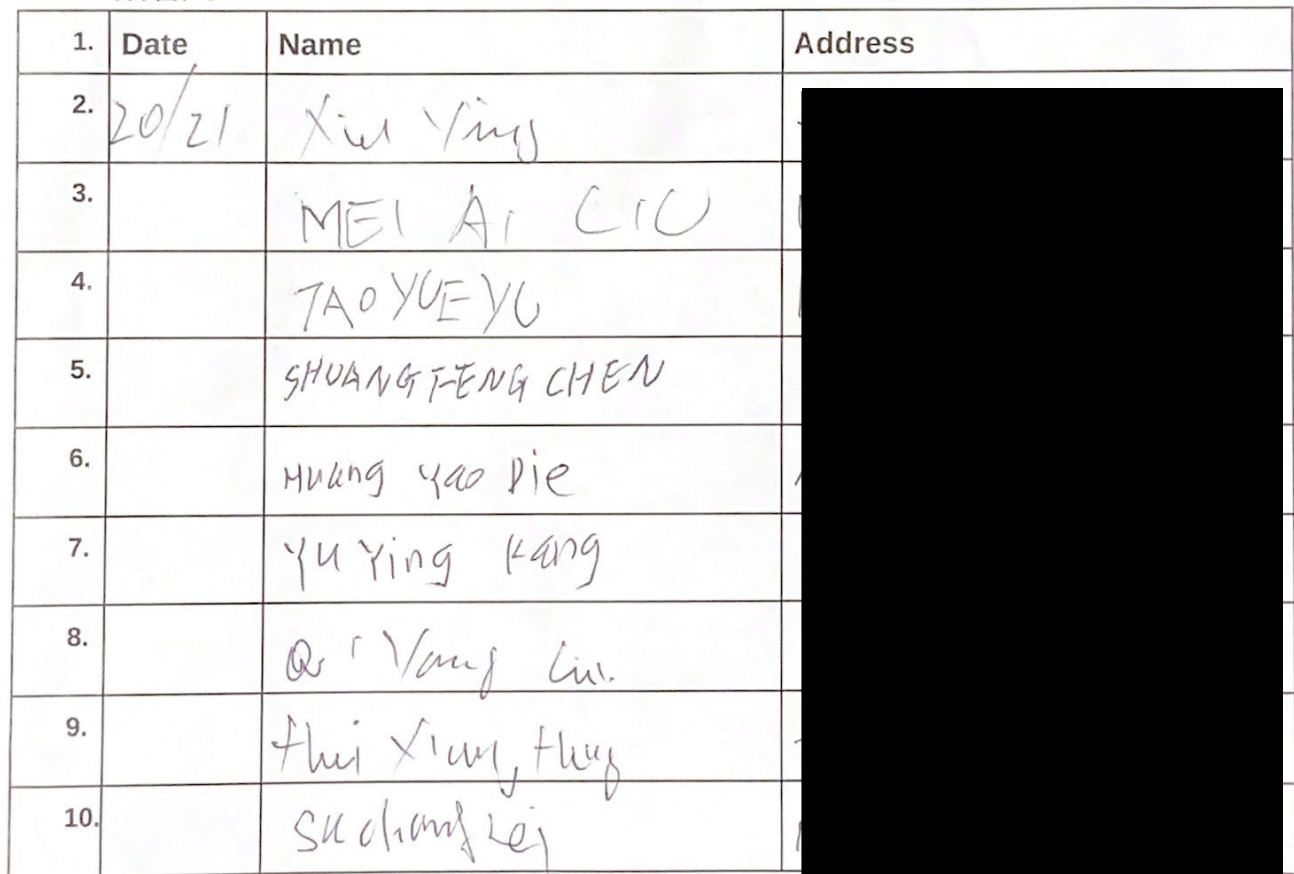 1. Date Name Address
2. 20/21 Xiu Ying
3. MEI Ai LiU
4. TAO YUE YU
5. SHUANG FENG CHEN
6. Huang Yao Die
7. Yu Ying Kang
8. Qi Yang Liu.
9.
10. Su chang Lei